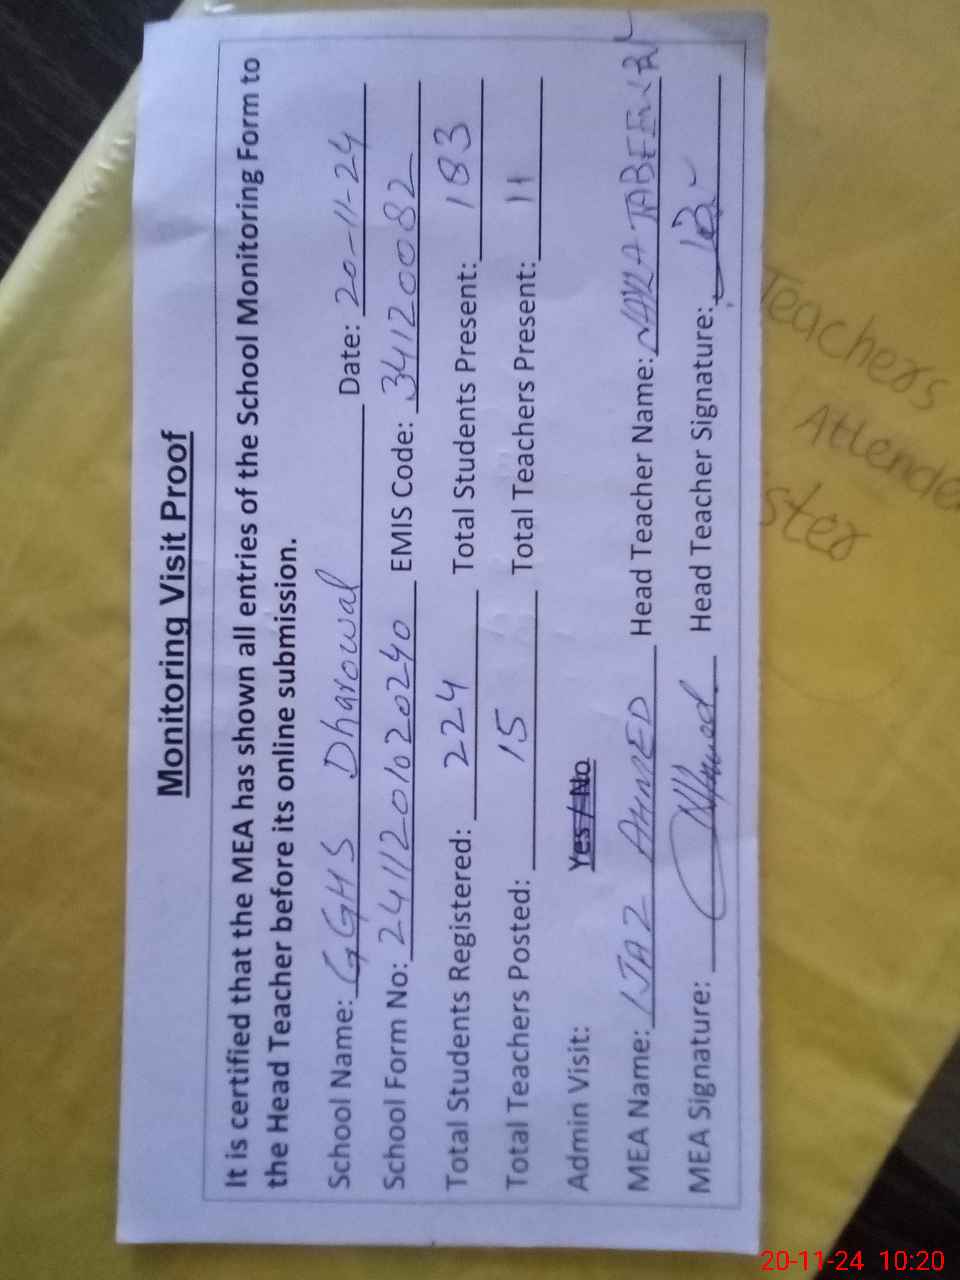 Monitoring Visit Proof
It is certified that the MEA has shown all entries of the School Monitoring Form to
the Head Teacher before its online submission.
School Name: GGHS Dharowal Date: 20-11-24
School Form No: 2411201020240 EMIS Code: 34120082
Total Students Registered: 224 Total Students Present: 183
Total Teachers Posted: 15 Total Teachers Present: 11
Admin Visit: Yes / No
MEA Name: IJAZ AHMED Head Teacher Name: NAYLA TABEER
MEA Signature: Head Teacher Signature:
Teachers
Attenda
ster
20-11-24 10:20